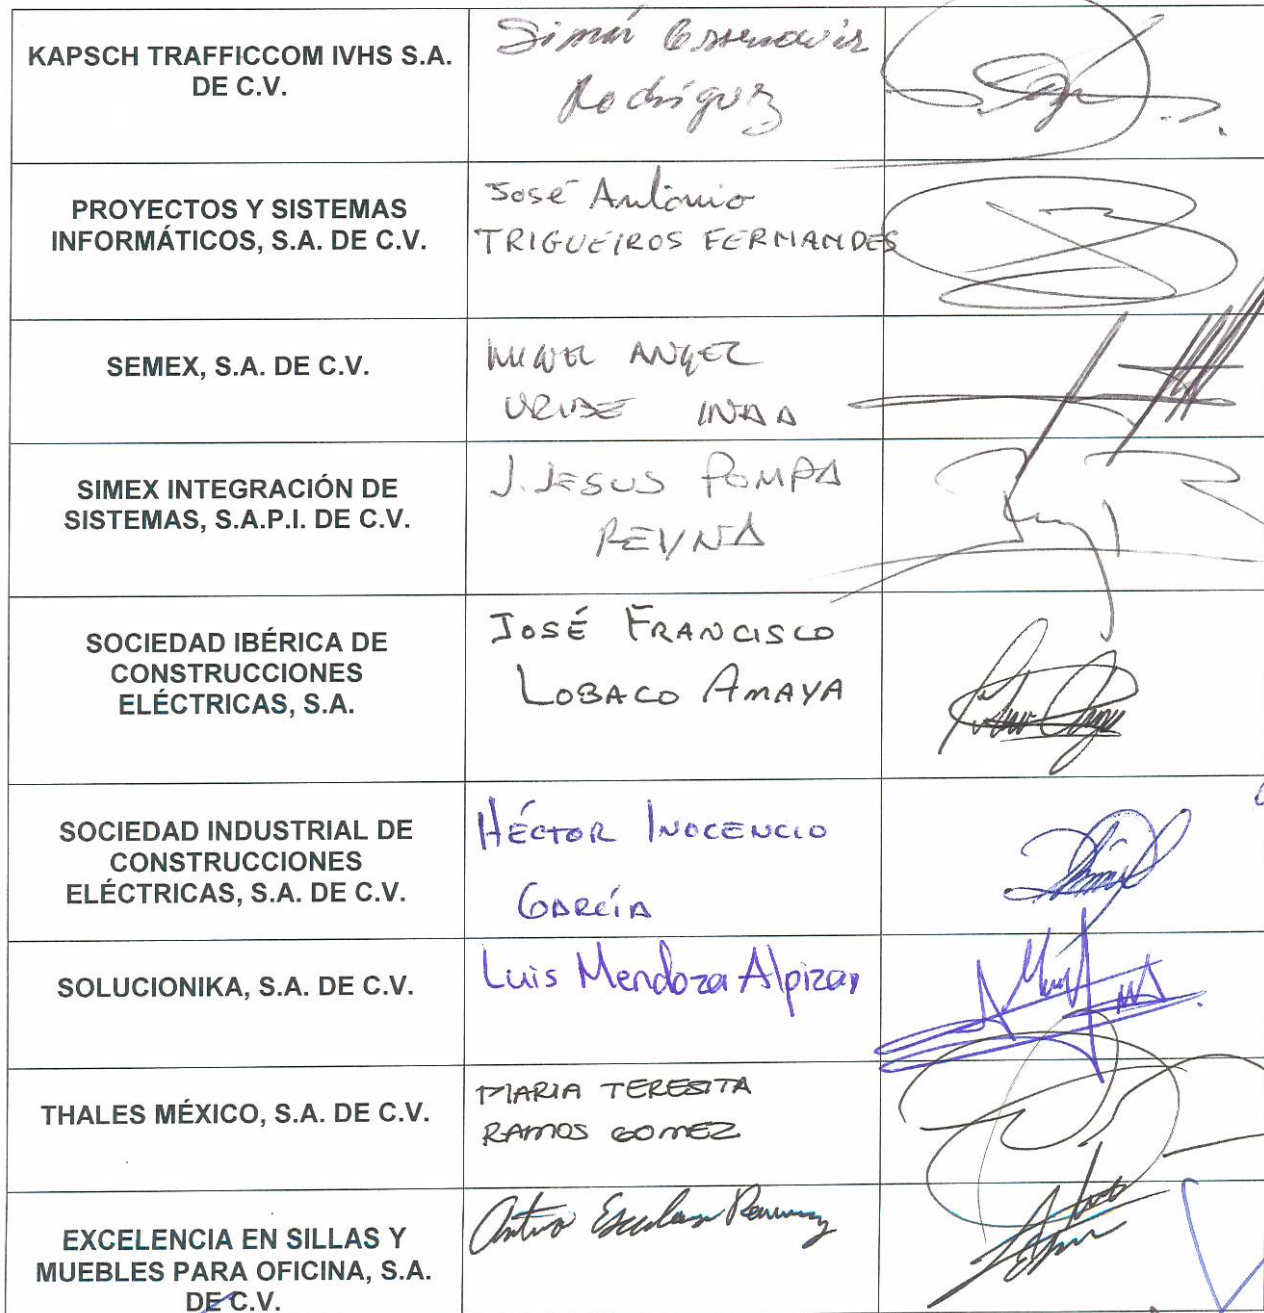 KAPSCH TRAFFICCOM IVHS S.A.
DE C.V.
Simón
Rodríguez
PROYECTOS Y SISTEMAS
INFORMÁTICOS, S.A. DE C.V.
José António
TRIGUEIROS FERNANDES
SEMEX, S.A. DE C.V.
MIGUEL ANGEL
URIBE
SIMEX INTEGRACIÓN DE
SISTEMAS, S.A.P.I. DE C.V.
J. JESUS POMPA
REYNA
SOCIEDAD IBÉRICA DE
CONSTRUCCIONES
ELÉCTRICAS, S.A.
JOSÉ FRANCISCO
LOBACO AMAYA
SOCIEDAD INDUSTRIAL DE
CONSTRUCCIONES
ELÉCTRICAS, S.A. DE C.V.
HÉCTOR INOCENCIO
GARCÍA
SOLUCIONIKA, S.A. DE C.V.
Luis Mendoza Alpizar
THALES MÉXICO, S.A. DE C.V.
MARIA TERESITA
RAMOS GOMEZ
EXCELENCIA EN SILLAS Y
MUEBLES PARA OFICINA, S.A.
DE C.V.
Arturo